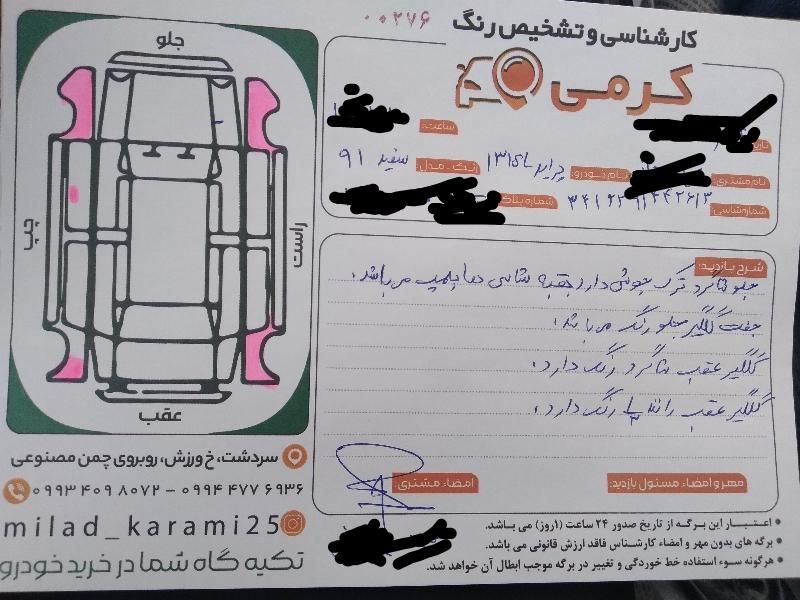 ۰۰۲۷۶
کارشناسی و تشخیص رنگ
کرمی
ساعت:
تاریخ:
نام مشتری:
نام خودرو: پراید ۱۳۱
رنگ - مدل: سفید ۹۱
شماره شاسی: ۳۴۱۲۲۹۱۲۴۲۶۱۳
شماره پلاک:
جلو
چپ
راست
عقب
شرح بازدید:
جلو شاگرد ترک جوشی دارد بقیه شاسی ها پلمپ می باشد.
جفت گلگیر جلو رنگ می باشد.
گلگیر عقب شاگرد رنگ دارد.
گلگیر عقب راننده ۱/۳ رنگ دارد.
مهر و امضاء مسئول بازدید:
امضاء مشتری:
سردشت، خ ورزش، روبروی چمن مصنوعی
۰۹۹۳ ۴۰۹ ۸۰۷۲ – ۰۹۹۴ ۴۷۷ ۶۹۳۶
milad_karami25
تکیه گاه شما در خرید خودرو
• اعتبار این برگه از تاریخ صدور ۲۴ ساعت (۱روز) می باشد.
• برگه های بدون مهر و امضاء کارشناس فاقد ارزش قانونی می باشد.
• هرگونه سوء استفاده خط خوردگی و تغییر در برگه موجب ابطال آن خواهد شد.